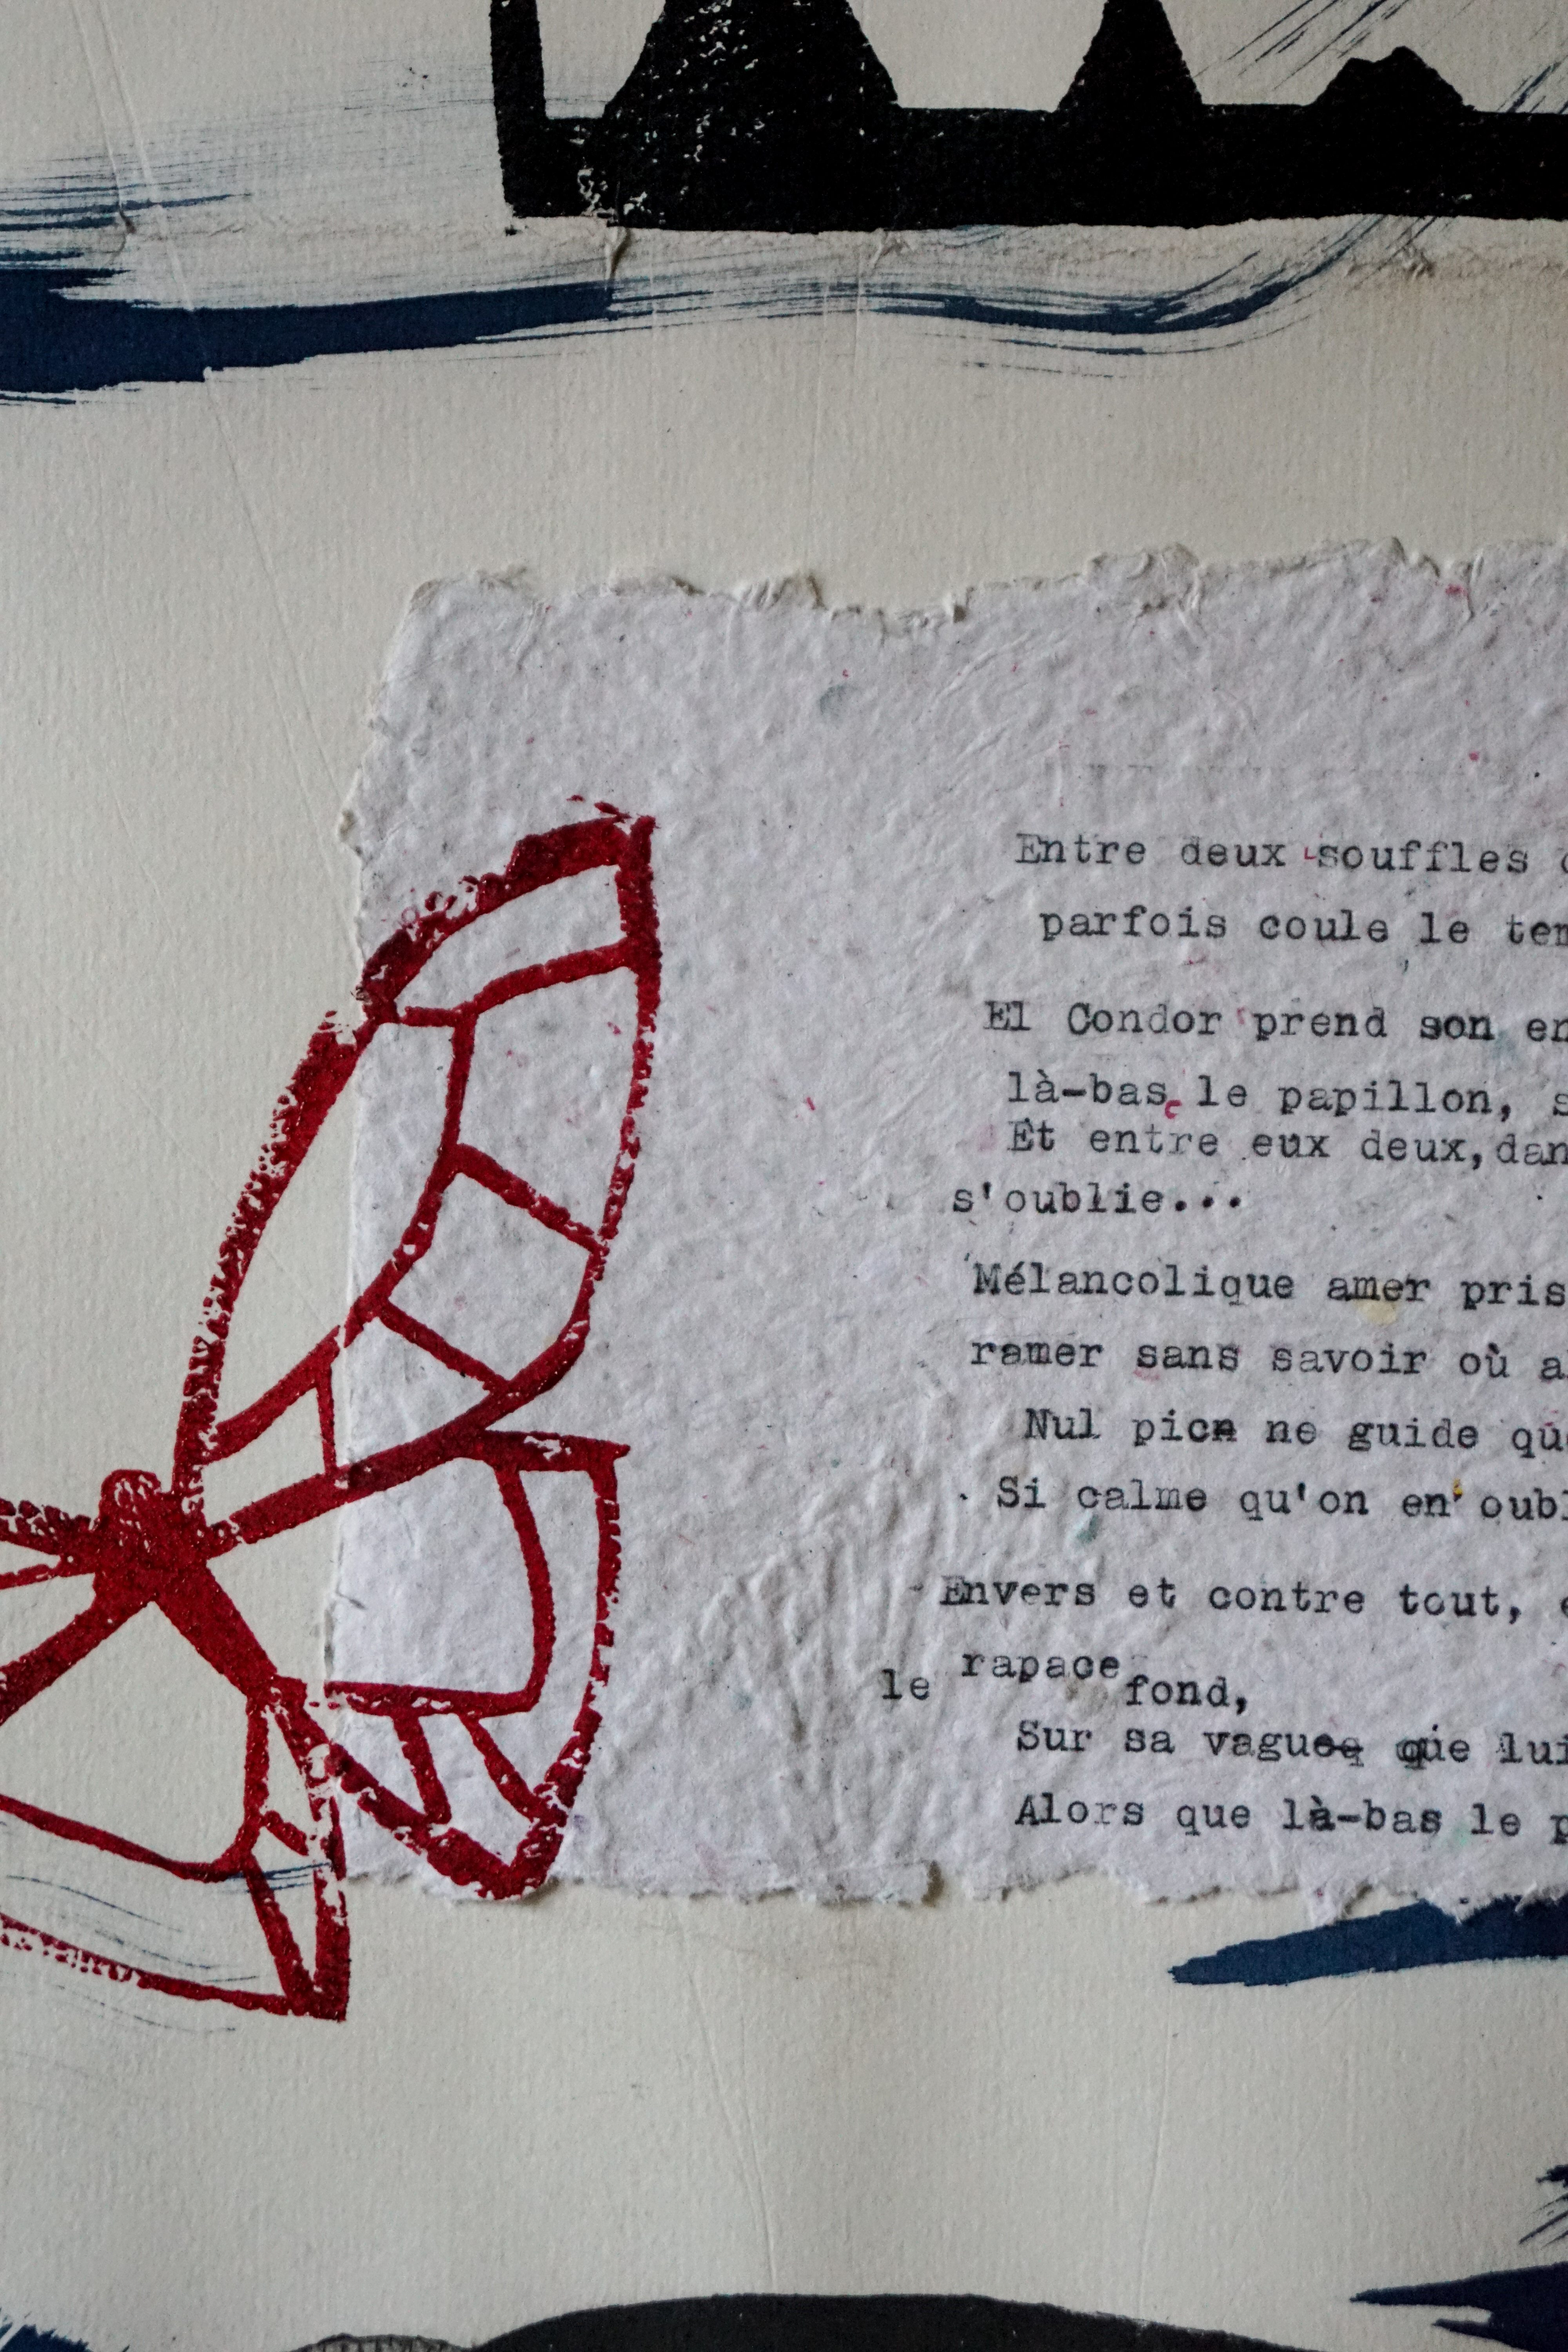 Entre deux souffles
parfois coule le
El Condor prend son
là-bas, le papillon,
Et entre eux deux,
s'oublie...
Mélancolique amer
ramer sans savoir où
Nul ne guide
Si calme qu'on en
Envers et contre tout,
le rapace fond,
Sur sa vague que
Alors que là-bas le